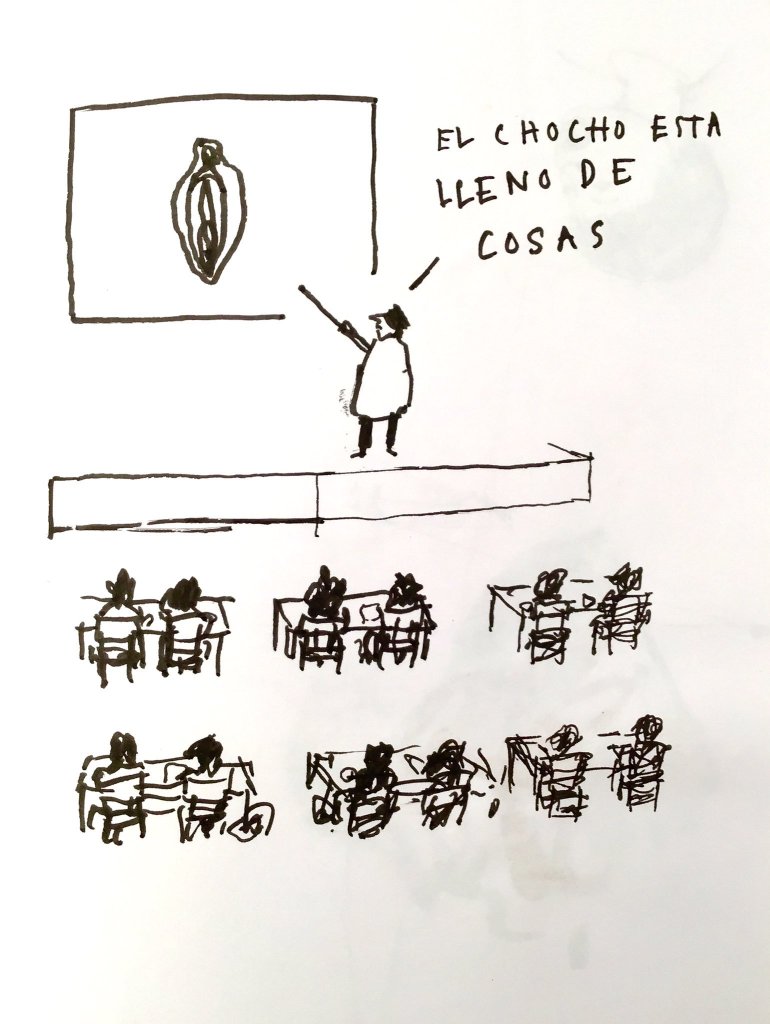 EL CHOCHO ESTA
LLENO DE
COSAS